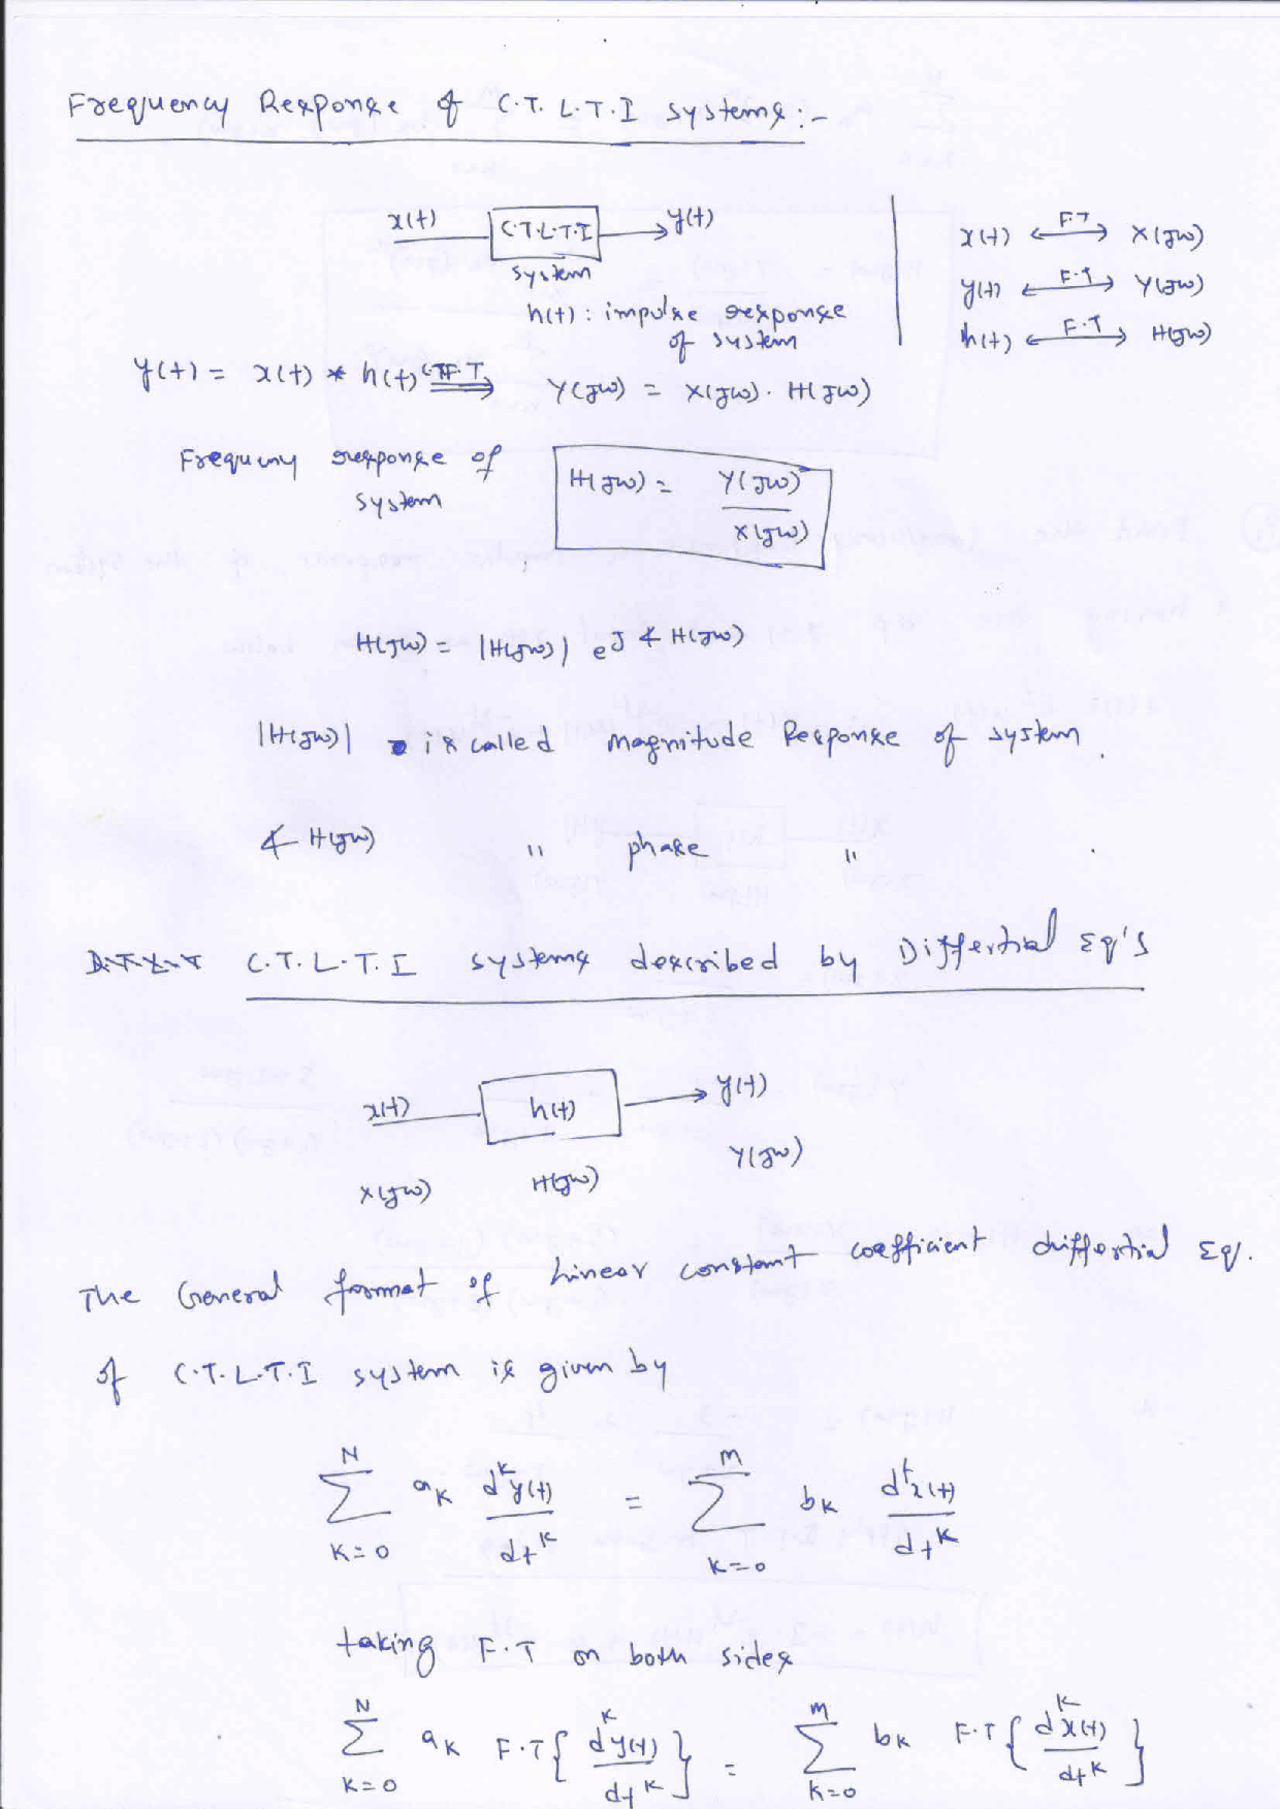 Frequency Response of C.T. L.T.I systems:-
x(t) C.T.L.T.I y(t)
system
h(t) : impulse response
of system
x(t) <-F.T-> X(jω)
y(t) <-F.T-> Y(jω)
h(t) <-F.T-> H(jω)
y(t) = x(t) * h(t) CTF.T ⟹ Y(jω) = X(jω) . H(jω)
Frequency response of
system
H(jω) = Y(jω) / X(jω)
H(jω) = |H(jω)| e^{j ∡ H(jω)}
|H(jω)| is called magnitude Response of system.
∡ H(jω) " phase " .
C.T. L.T.I systems described by Differtial Eq's
x(t) h(t) y(t)
X(jω) H(jω) Y(jω)
The General format of Linear constant coefficient differtial Eq.
of C.T.L.T.I system is given by
∑_{K=0}^{N} a_K d^K y(t) / dt^K = ∑_{K=0}^{M} b_K d^K x(t) / dt^K
taking F.T on both sides
∑_{K=0}^{N} a_K F.T { d^K y(t) / dt^K } = ∑_{K=0}^{M} b_K F.T { d^K x(t) / dt^K }